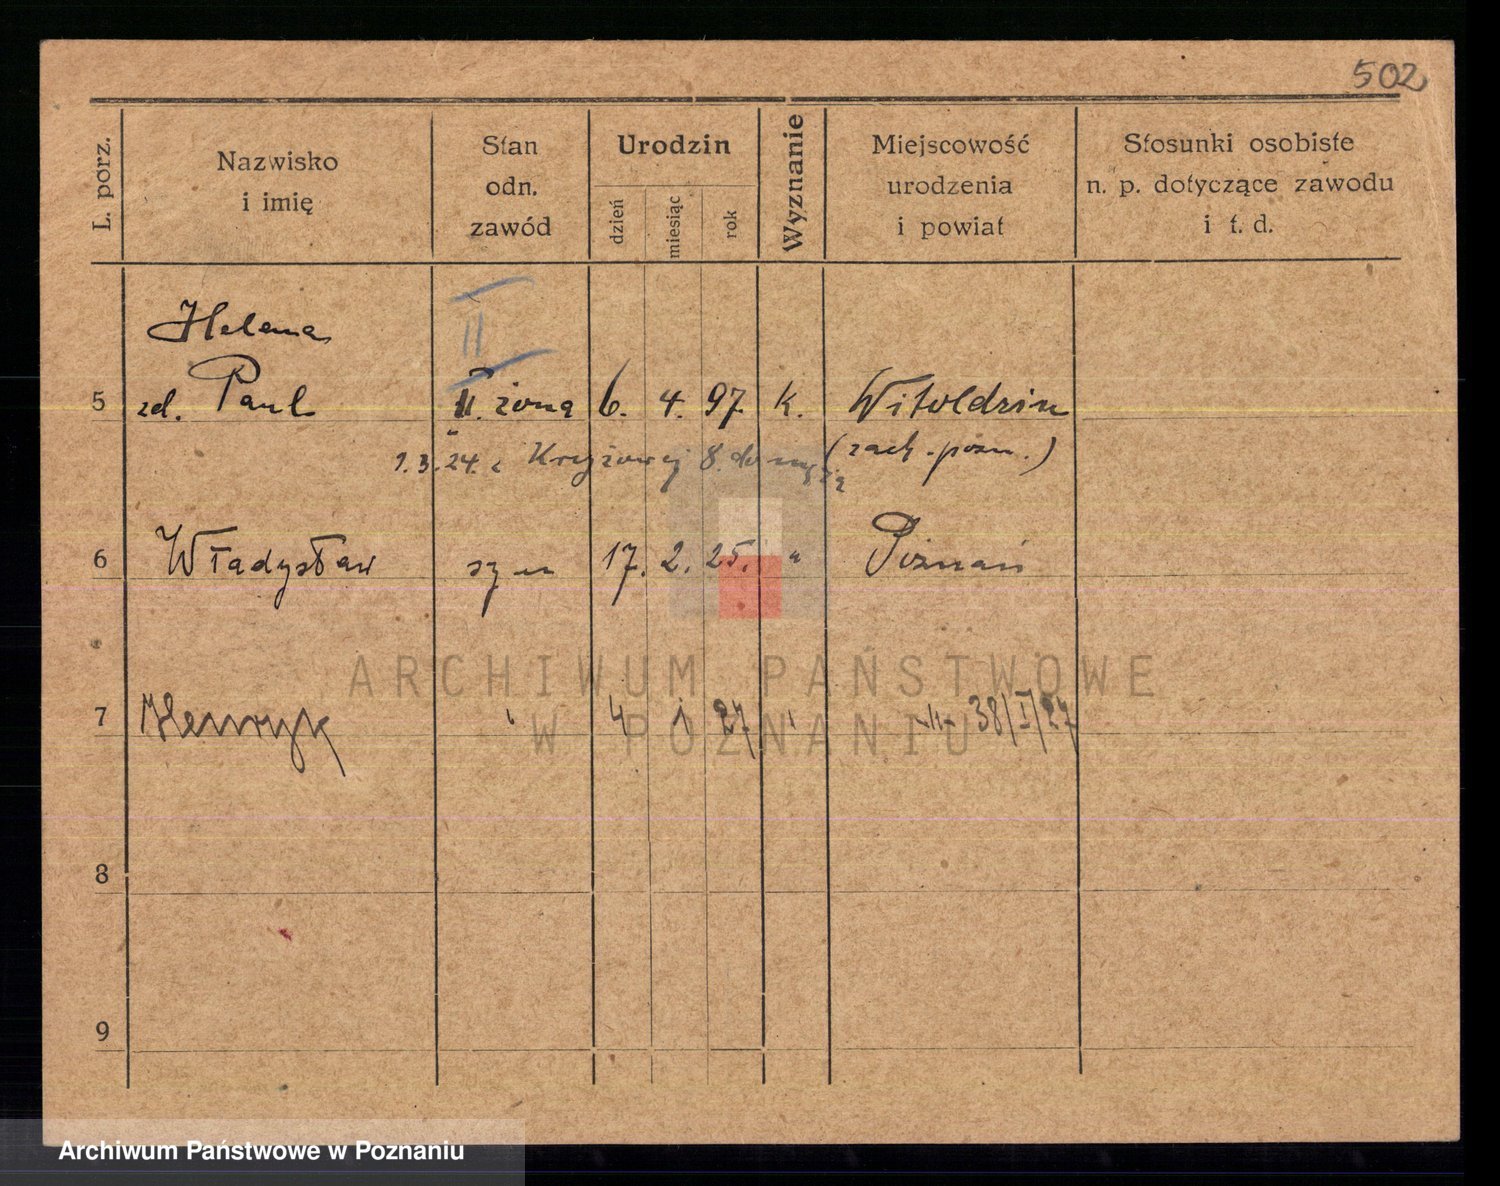 502
L. porz.
Nazwisko
i imię
Stan
odn.
zawód
Urodzin
dzień
miesiąc
rok
Wyznanie
Miejscowość
urodzenia
i powiat
Stosunki osobiste
n. p. dotyczące zawodu
i t. d.
Helena
II
5 zd. Paul II. żona 6. 4. 97. k. Witoldzin
(zach. pozn.)
1.3.24. z Krzyżowej 8. do męża
6 Władysław syn 17. 2. 25. " Poznań
7 Henryk " 4 1 27 " -"- 38/I/27
8
9
ARCHIWUM PAŃSTWOWE
W POZNANIU
Archiwum Państwowe w Poznaniu